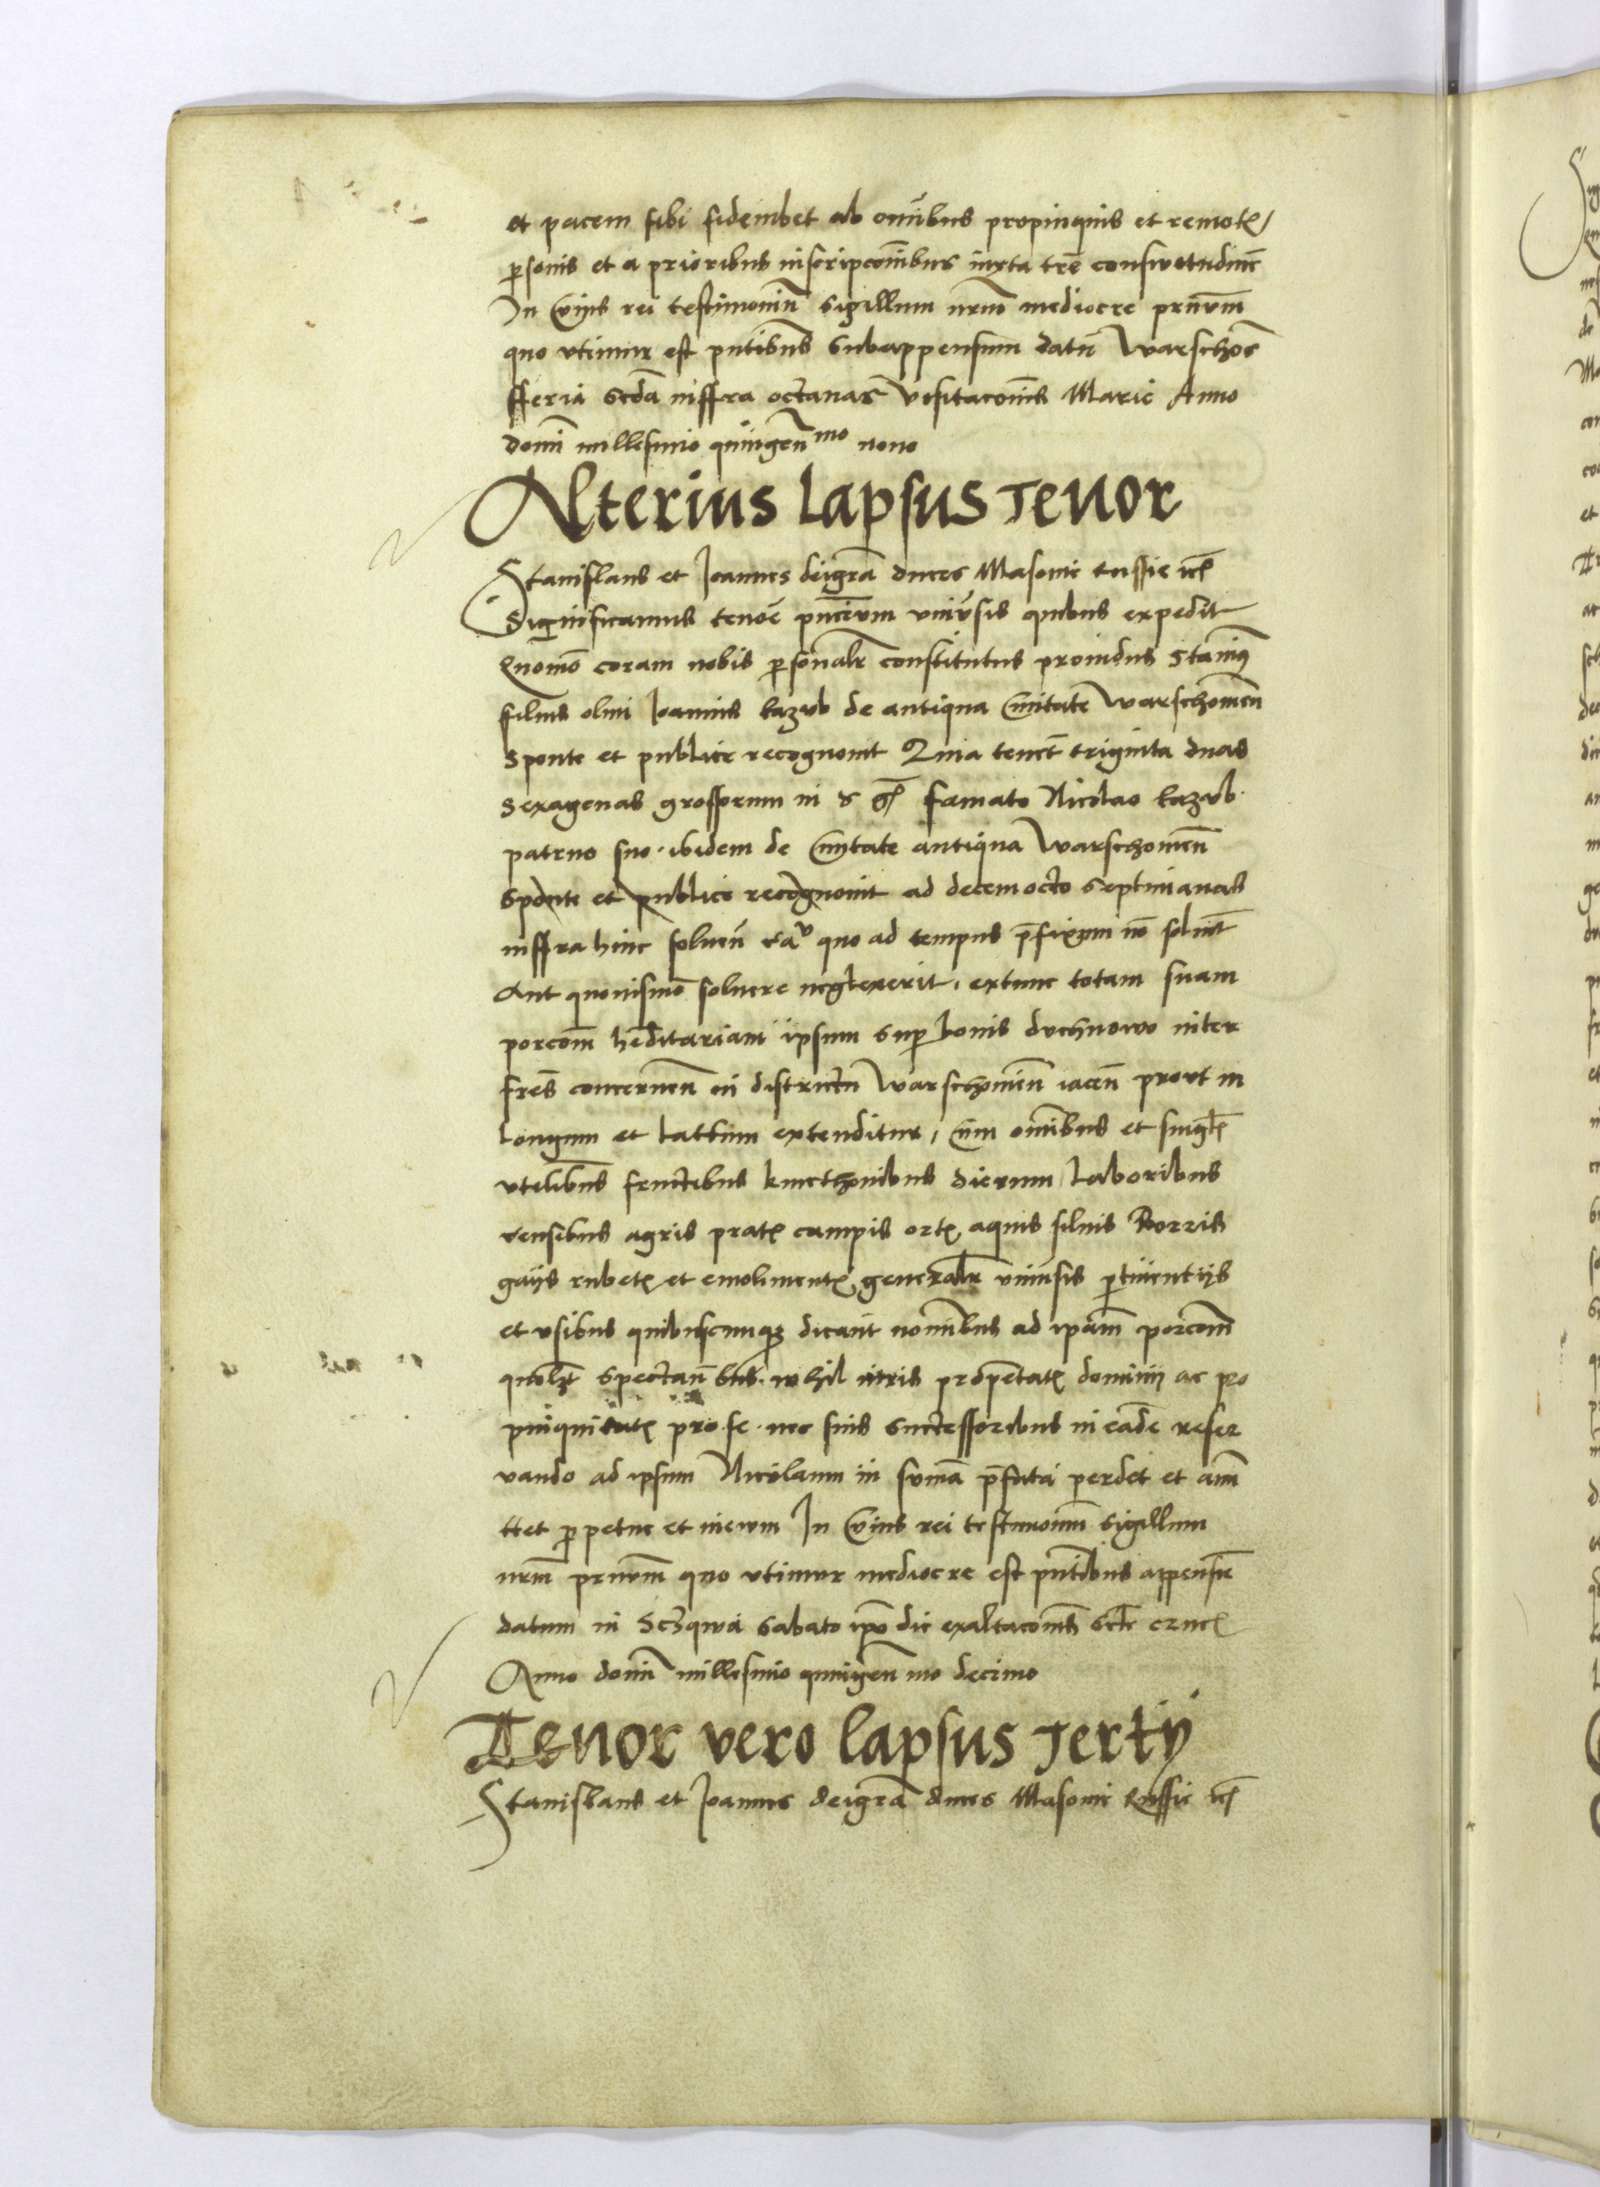 et pacem sibi fideiubet ab omībus propinquis et remotꝭ
ꝑsonis et a prioribus inscripcōnibus iuxta trē consuetudinē
In Cuius rei testimoniū sigillum nrm̄ mediocre prn̄um
quo vtimur est pn̄tibus subappensum datū Warschoē
fferia scdā inffra octauas Visitacōnis Marie Anno
domī millesimo quingenᵐᵒ nono
Alterius Lapsus Tenor
Stanislaus et Joannes deigrā duces Masouie Russie zcꝭ
Significamus tenore pn̄cium vniūsis quibus expedit
Quomō coram nobis ꝑsonalr̄ constitutus prouidus Stanisꝰ
filius olim Joannis kazub de antiqua Ciuitate Warschouien̄
sponte et publice recognouit Quia tenet̄ triginta duas
sexagenas grossorum in gꝭ famato Nicolao kazub
patruo suo ibidem de Ciuitate antiqua Warschouien̄
sponte et publice recognouit ad decemocto septimanas
inffra hinc soluen̄ quo ad tempus p̄fixum nō soluerit
Aut quouismō soluere neglexerit, extunc totam suam
porcōm hēditariam ipsum sup bonis duchnowo inter
frēs concernen̄ in districtu Warschouien̄ iacen̄ prout in
Longum et Lattum extenditur, cūm omībus et singlꝭ
vtilibus fructibus kmethonibus dierum Laboribus
censibus agris pratꝭ campis ortꝭ aquis siluis Borris
gaijs rubetꝭ et emolimentꝭ generalr̄ vniūsis ꝑtinentijs
et vsibus quibuscunqꝫ dicant̄ nomībus ad ipām porcōm
quolꝫt spectan̄bus nihil iuris propētatꝭ dominij ac pro
pinquitatꝭ pro se nec suis successoribus in eadē reser
uando ad ipsum Nicolaum in sumā p̄fata perdet et amī
ttet ꝑpetue et in ewm In Cuius rei testimonium sigillum
nrm̄ prn̄um quo vtimur mediocre est pn̄tibus appensū
datum in sabato ipō die exaltacōnis scē crucꝭ
Anno domī millesimo quingen̄mo decimo
Tenor vero lapsus Tertij
Stanislaus et Joannes deigrā duces Masouie Russie zcꝭ